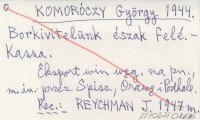 KOMORÓCZY György 1944.
Borkivitelünk észak felé.-
Kassa.
Eksport win węg. na pn.,
m.in. przez Spisz, Orawę i Podhale.
Rec.: REYCHMAN J. 1947 m.